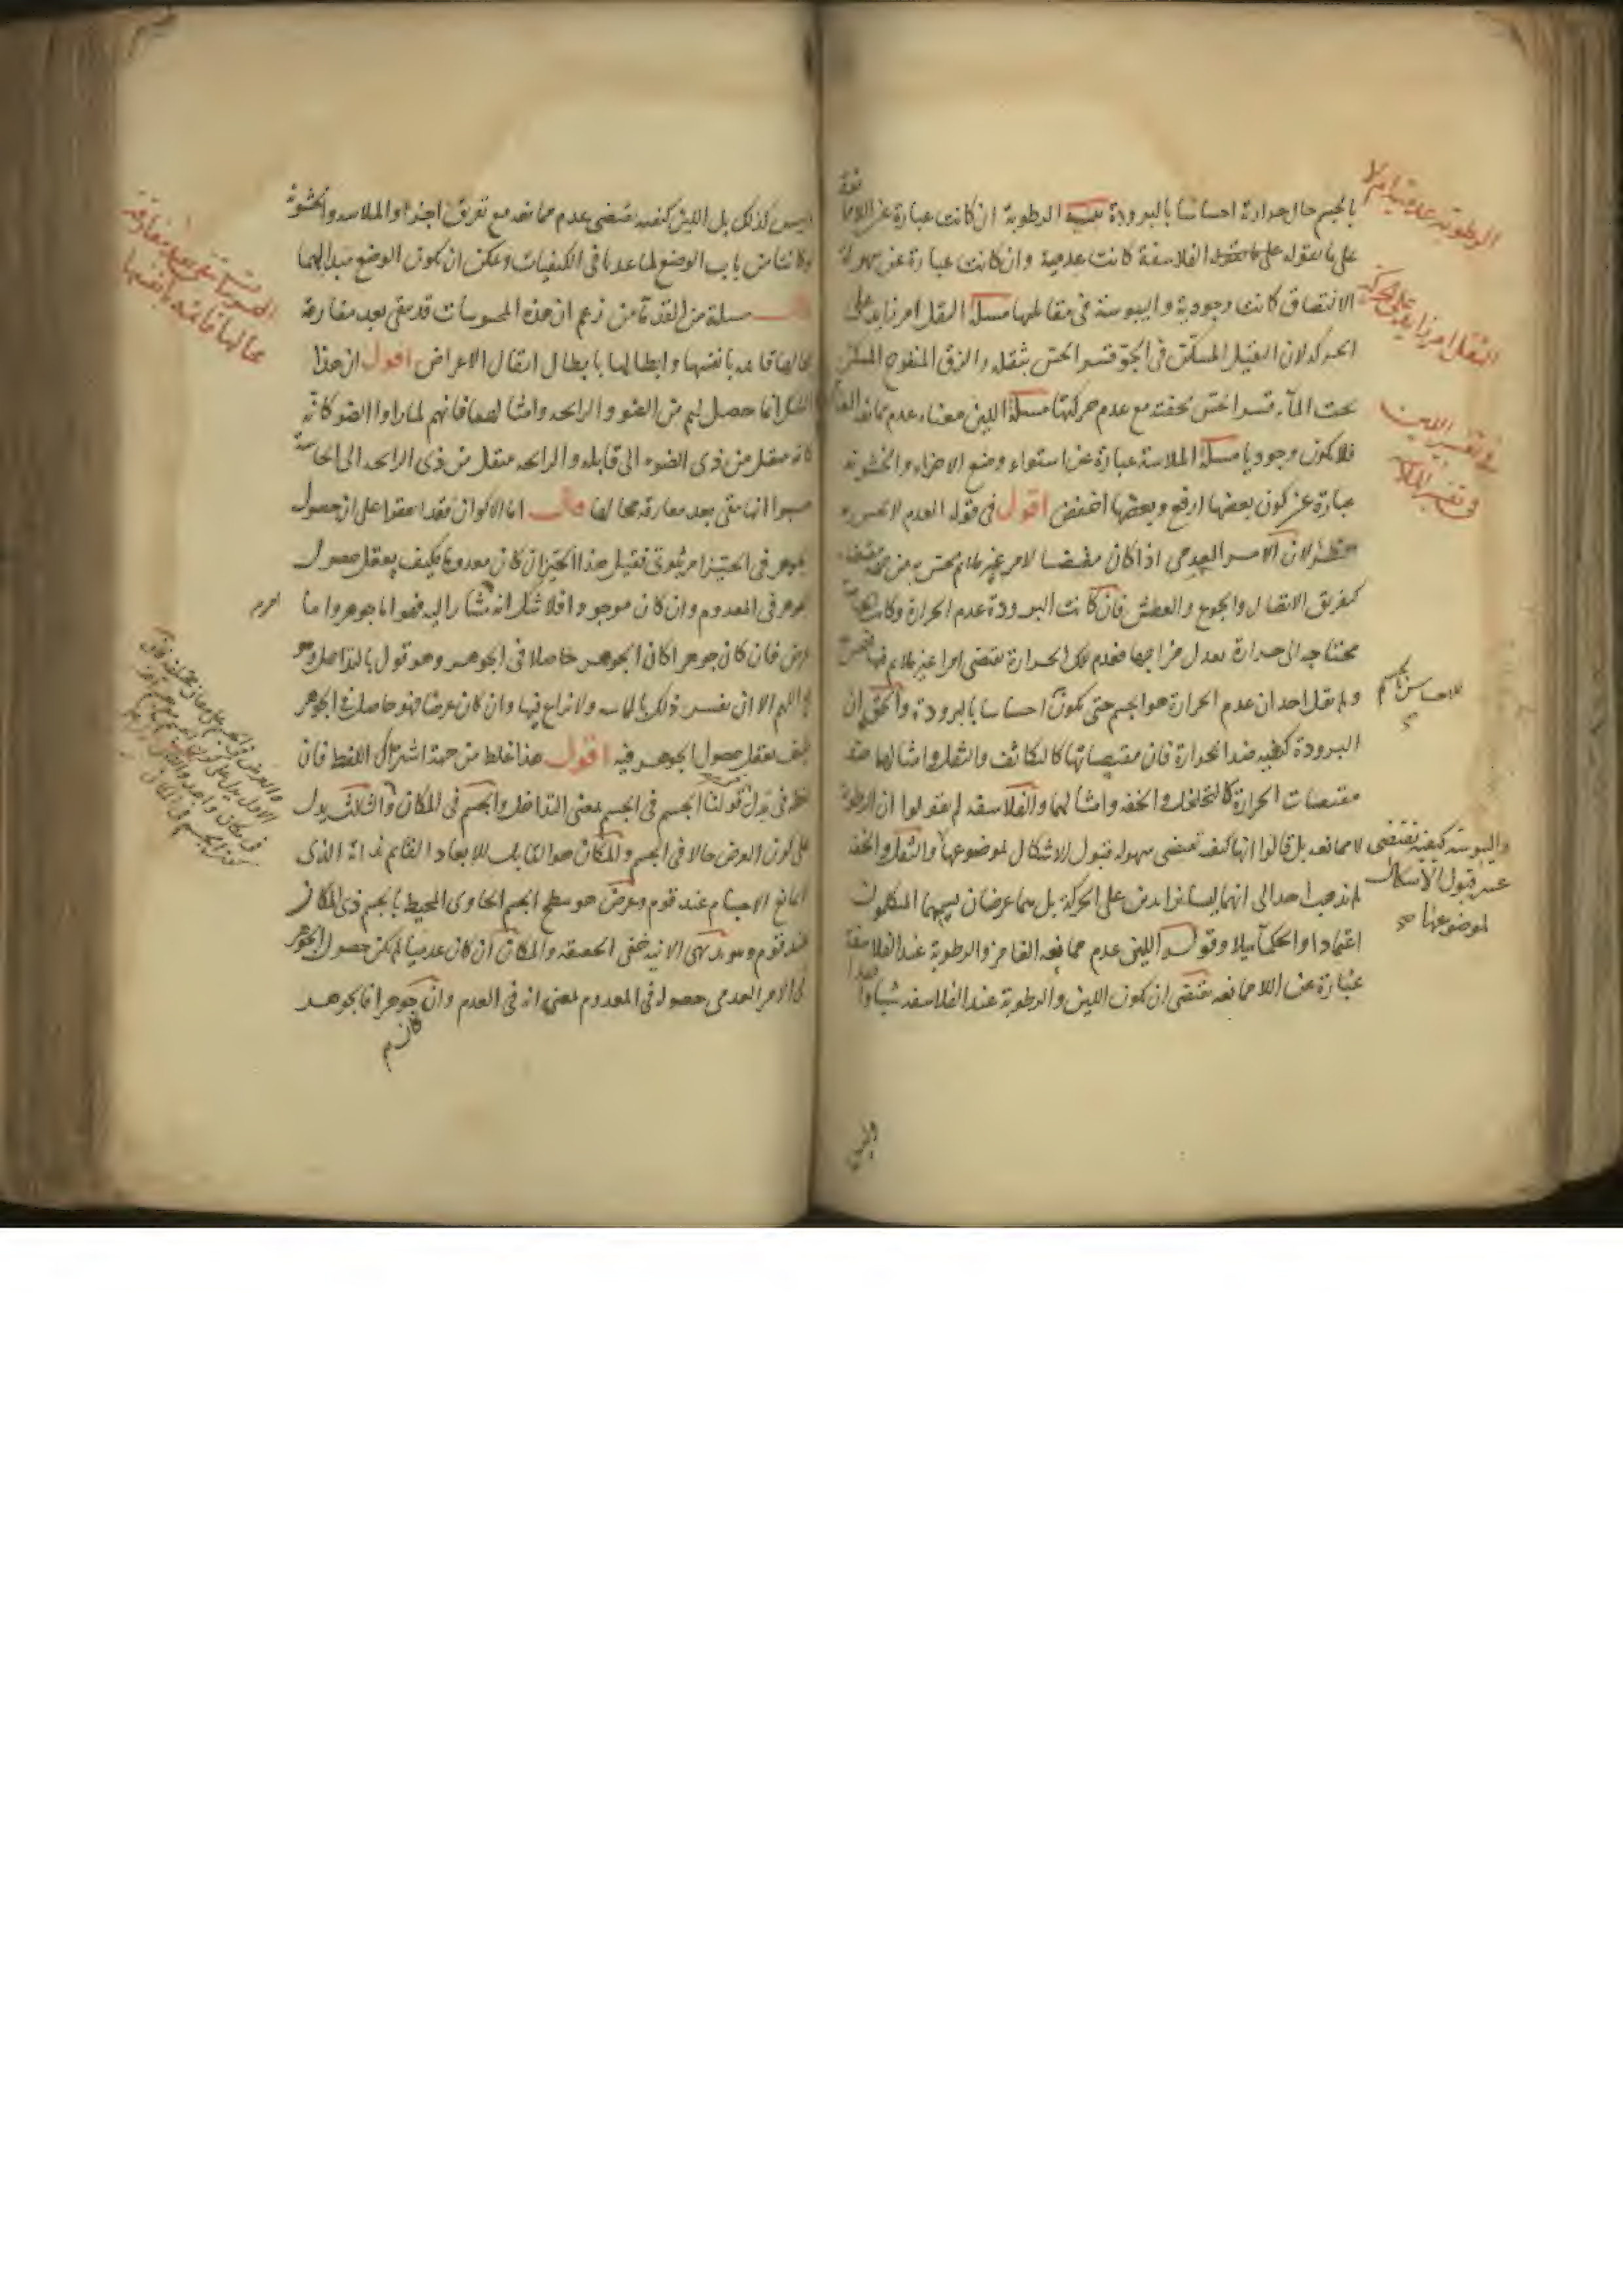 بالجسم حال حرارة احساسا بالبرودة الرطوبة ان كانت عبارة عن اللامما نعة
على ما يقوله الفلاسفة كانت عدمية وان كانت عبارة عن سهولة
الالتصاق كانت وجودية واليبوسة في مقابلها مسئلة الثقل امر زايد على
الحركة لان الثقيل المسكن في الجو قسرا نحس بثقله والزق المنفوخ المسكن
تحت المآء قسرا نحس بخفته مع عدم حركتها مسئلة اللين معناه عدم ممانعة الغامز
فلا يكون وجوديا مسئلة الملاسة عبارة عن استواء وضع الاجزاء والخشونة
عبارة عن كون بعضها ارفع وبعضها اخفض اقول في قوله العدم لا يحس به
نظر لان الامر العدمي اذا كان مقتضيا لامر غير ملايم يحس به من جهة مقتضاه
كتفريق الاتصال والجوع والعطش فان كانت البرودة عدم الحرارة وكانت
محتاجة الى حرارة تعدل مزاجها فعدم تلك الحرارة تقتضي امرا غير ملايم فيها فيحس
ولم يقل احد ان عدم الحرارة هو الجسم حتى يكون احساسا بالبرودة والحق ان
البرودة كيفية ضد الحرارة فان مقتضياتها كالتكاثف والثقل وامثالهما ضد
مقتضيات الحرارة كالتخلخل والخفة وامثالهما والفلاسفة لم يقولوا ان الرطوبة
لا ممانعة بل قالوا انها كيفية تقتضي سهولة قبول الاشكال لموضوعها والثقل والخفة
لم يذهب احد الى انهما ليسا زايدين على الحركة بل هما عرضان يسميهما المتكلمون
اعتمادا والحكمآ ميلا وقوله اللين عدم ممانعة الغامز والرطوبة عند الفلاسفة
عبارة عن اللاممانعة يقتضي ان يكون اللين والرطوبة عند الفلاسفة شيا واحدا
وليس
الرطوبة عدمية ام لا
الثقل امر زايد على الحركة
في تفسير اللين
في تفسير الملاسة
للاحساس بالجسم
واليبوسة كيفية تقتضي
عسر قبول الاشكال
لموضوعها صح
وليس كذلك بل اللين كيفية تقتضي عدم ممانعة مع تفرق اجزاء والملاسة والخشونة
وكانتا من باب الوضع لما عدتا في الكيفيات ويمكن ان يكون الوضع مبدا لهما
قال مسئلة من القدمآ من زعم ان هذه المحسوسات قد تبقى بعد مفارقة
محالها قايمة بانفسها وابطالها بابطال انتقال الاعراض اقول ان هذا
الشك انما حصل لهم من الضوء والرايحة وامثالهما فانهم لما راوا الضوء كانه
كانه منتقل من ذي الضوء الى قابله والرايحة منتقل من ذي الرايحة الى الحاسة
حسبوا انها تبقى بعد مفارقة محالها قال اما الاكوان فقد اتفقوا على ان حصول
الجوهر في الحيز امر ثبوتي فقيل هذا الحيز ان كان معدوما فكيف يعقل حصول
الجوهر في المعدوم وان كان موجودا فلا شك انه مشار اليه فهو اما جوهر واما
عرض فان كان جوهرا كان الجوهر حاصلا في الجوهر وهو قول بالتداخل وهو
مح اللهم الا ان يفسر ذلك بالمماسة ولا نزاع فيها وان كان عرضا فهو حاصل في الجوهر
فكيف يعقل حصول الجوهر فيه اقول هذا غلط من جهة اشتراك اللفظ فان
لفظة في يدل قولنا الجسم في الجسم بمعنى التداخل والجسم في المكان والثالث يدل
على كون العرض حالا في الجسم والمكان هو القابل للابعاد القايم بذاته الذي
لا يمانع الاجسام عند قوم وعرض هو سطح الجسم الحاوي المحيط بالجسم ذي المكان
عند قوم وهو بديهي الانية خفي الحقيقة والمكان ان كان عدميا لم يكن حصول الجوهر
في الامر العدمي حصوله في المعدوم بمعنى انه في العدم وان كان جوهرا فالجوهر
المحسوسات تبقى بعد مفارقة
محالها قائمة بانفسها